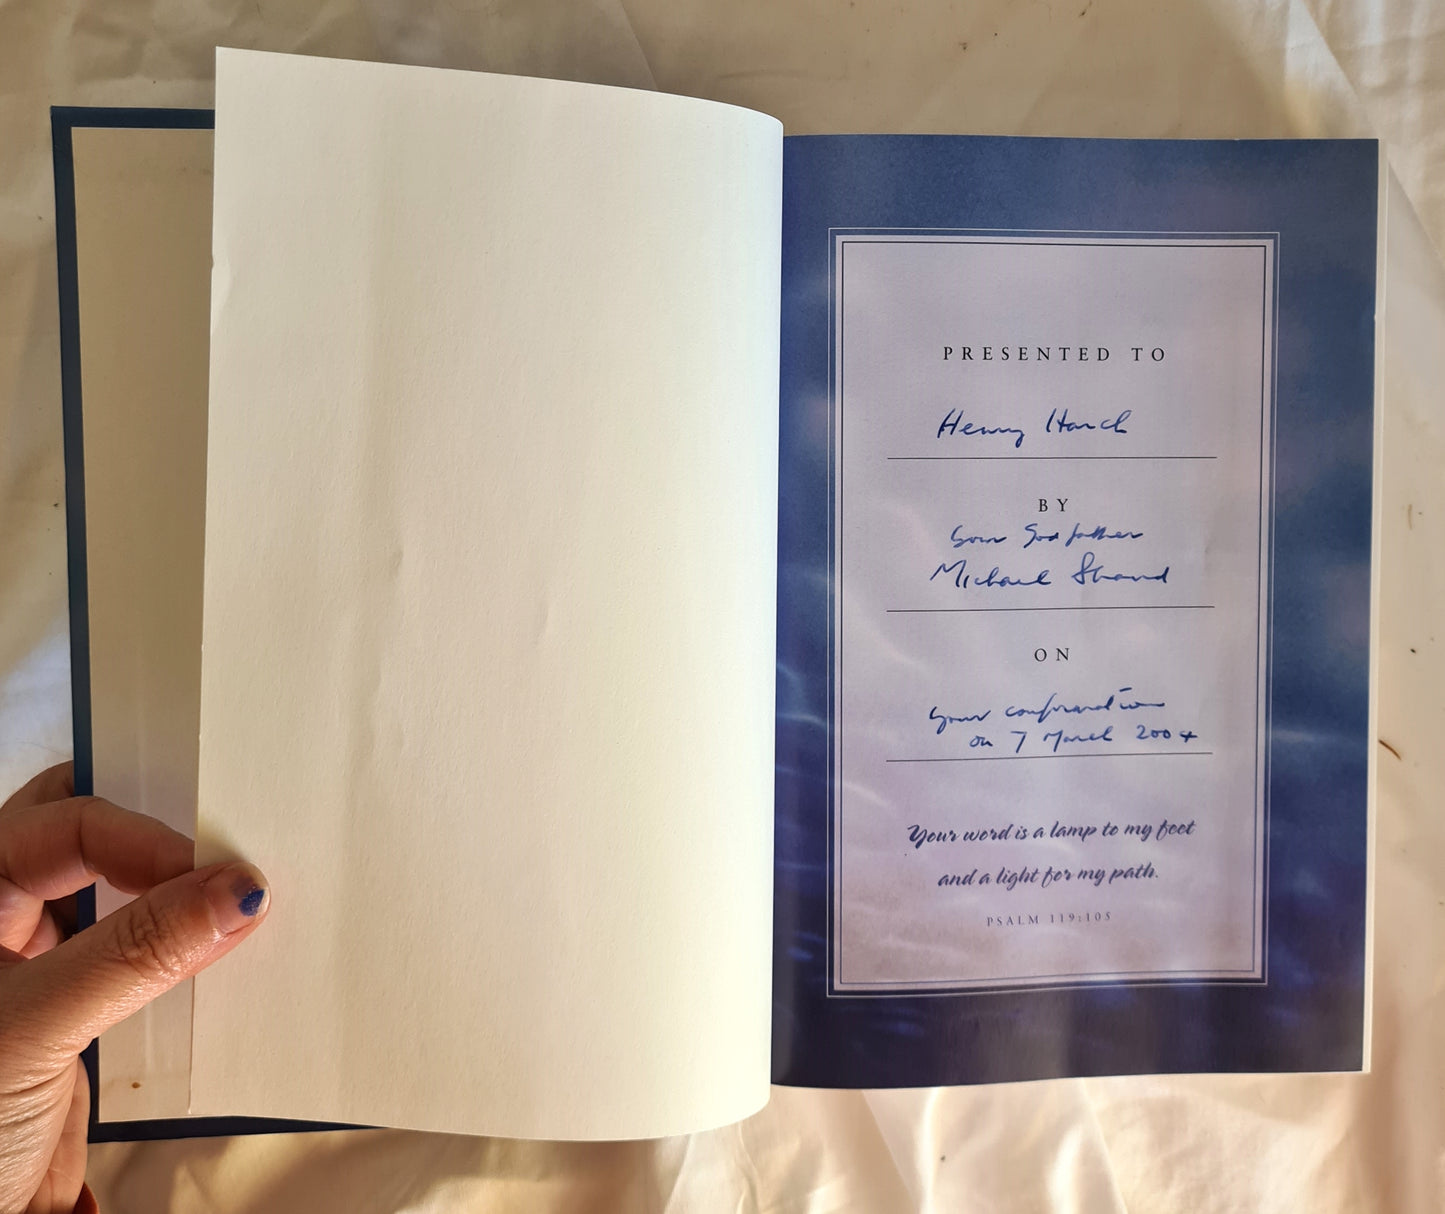 PRESENTED TO
Henry Hanch
BY
Your Godfather
Michael Strand
ON
Your confirmation
on 7 March 2004
Your word is a lamp to my feet
and a light for my path.
PSALM 119:105